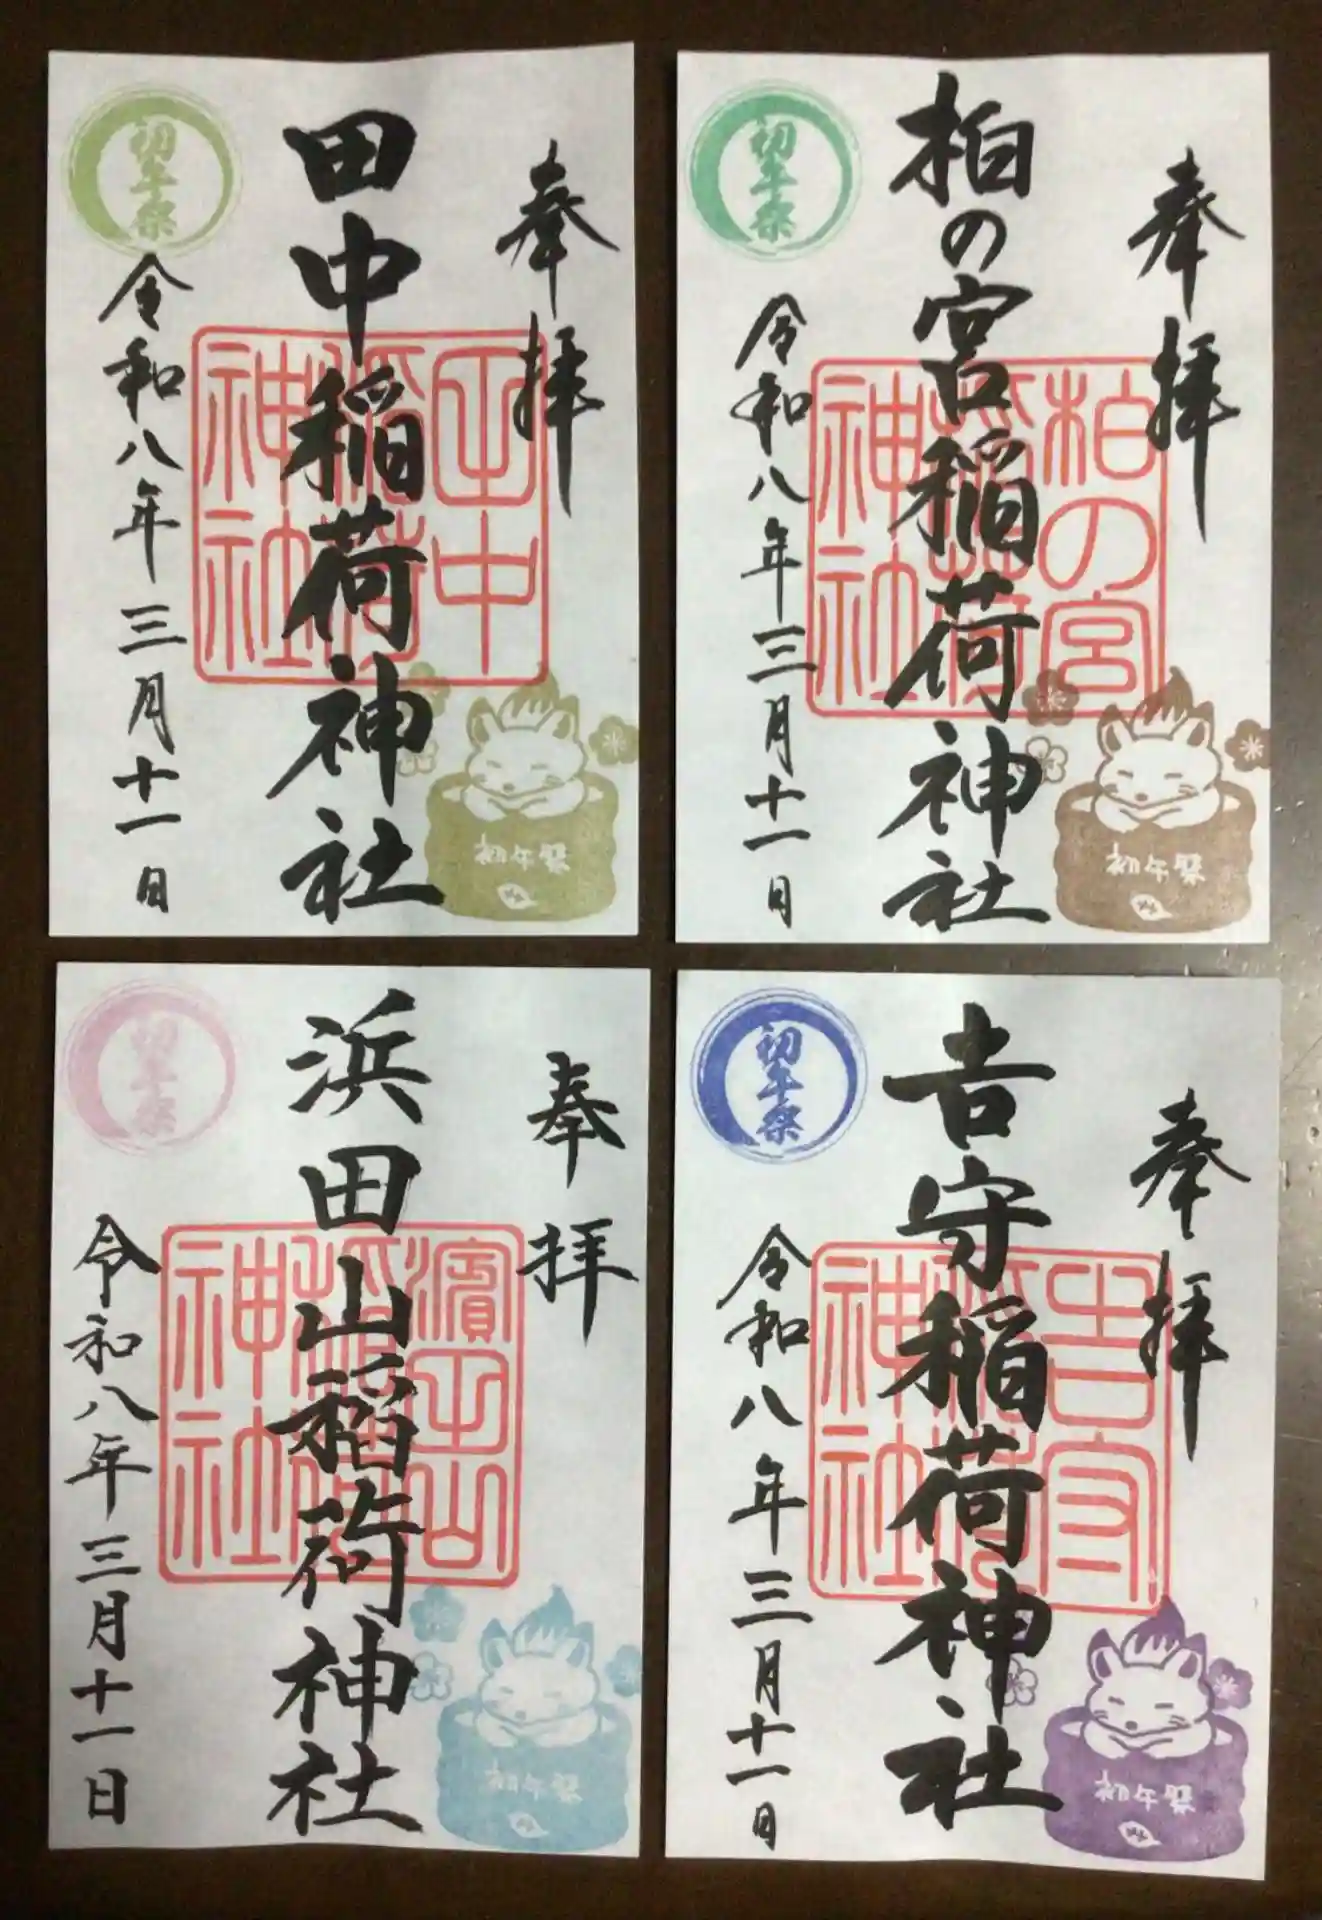 奉拝
田中稲荷神社
令和八年三月十一日
初午祭
田中稲荷神社
初午祭
奉拝
柏の宮稲荷神社
令和八年三月十一日
初午祭
柏の宮稲荷神社
初午祭
奉拝
浜田山稲荷神社
令和八年三月十一日
初午祭
濱田山稲荷神社
初午祭
奉拝
吉守稲荷神社
令和八年三月十一日
初午祭
吉守稲荷神社
初午祭